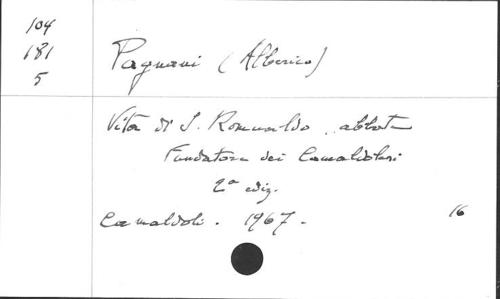 104
181
5
Pagnani (Alberico)
Vita di S. Romualdo, abbate
Fondatore dei Camaldolesi
2a ediz.
Camaldoli. 1967.
16